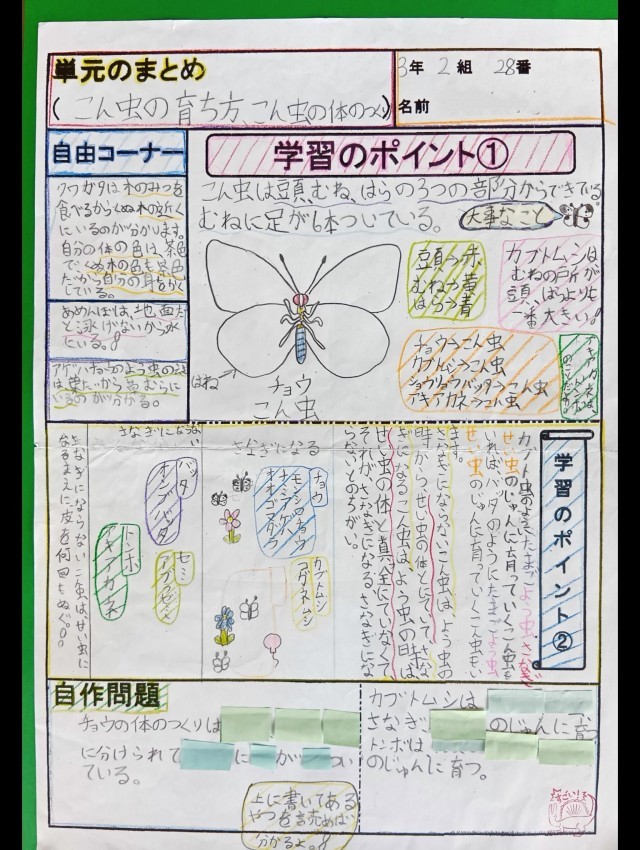 単元のまとめ
(こん虫の育ち方、こん虫の体のつくり)
3年 2組 28番
名前
自由コーナー
クワガタは木のみつを
食べるからくぬ木の近く
にいるのが分かります。
自分の体の色は茶色
で、くぬ木の色も茶色
だから自分の身をかく
している。
あめんぼは、地面だ
と泳げないから水
にいる。
アゲハチョウのよう虫の
は葉だから
いるのが分かる。
学習のポイント①
こん虫は頭、むね、はらの3つの部分からできている。
むねに足が6本ついている。
大事なこと
頭→赤
むね→黄
はら→青
カブトムシは
むねの所が
頭、はらよりも
一番大きい。
チョウ→こん虫
カブトムシ→こん虫
ショウリョウバッタ→こん虫
アキアカネ→こん虫
アキアカネは
トンボ
はね
チョウ
こん虫
学習のポイント②
カブト虫のようにたまご、よう虫、さなぎ
せい虫のじゅんに育っていくこん虫も
いれば、バッタのようにたまご、よう虫
せい虫のじゅんに育っていくこん虫もい
ます。
さなぎにならないこん虫は、よう虫の
時から、せい虫の体とにていて、さな
ぎになるこん虫は、よう虫の時は、
せい虫の体と真全にていなくて
それが、さなぎになる、さなぎにな
らないとのちがい。
さなぎになる
チョウ
モンシロチョウ
ナミアゲハ
オオゴマダラ
カブトムシ
コガネムシ
さなぎにならない
バッタ
オンブバッタ
セミ
アブラゼミ
トンボ
アキアカネ
さなぎにならないこん虫は、せい虫に
なるまえに皮を何回もぬぐ。
自作問題
チョウの体のつくりは
に分けられて に が つい
ている。
カブトムシは
さなぎ のじゅんに育
トンボは
のじゅんに育つ。
上に書いてある
やつを読めば
分かるよ。